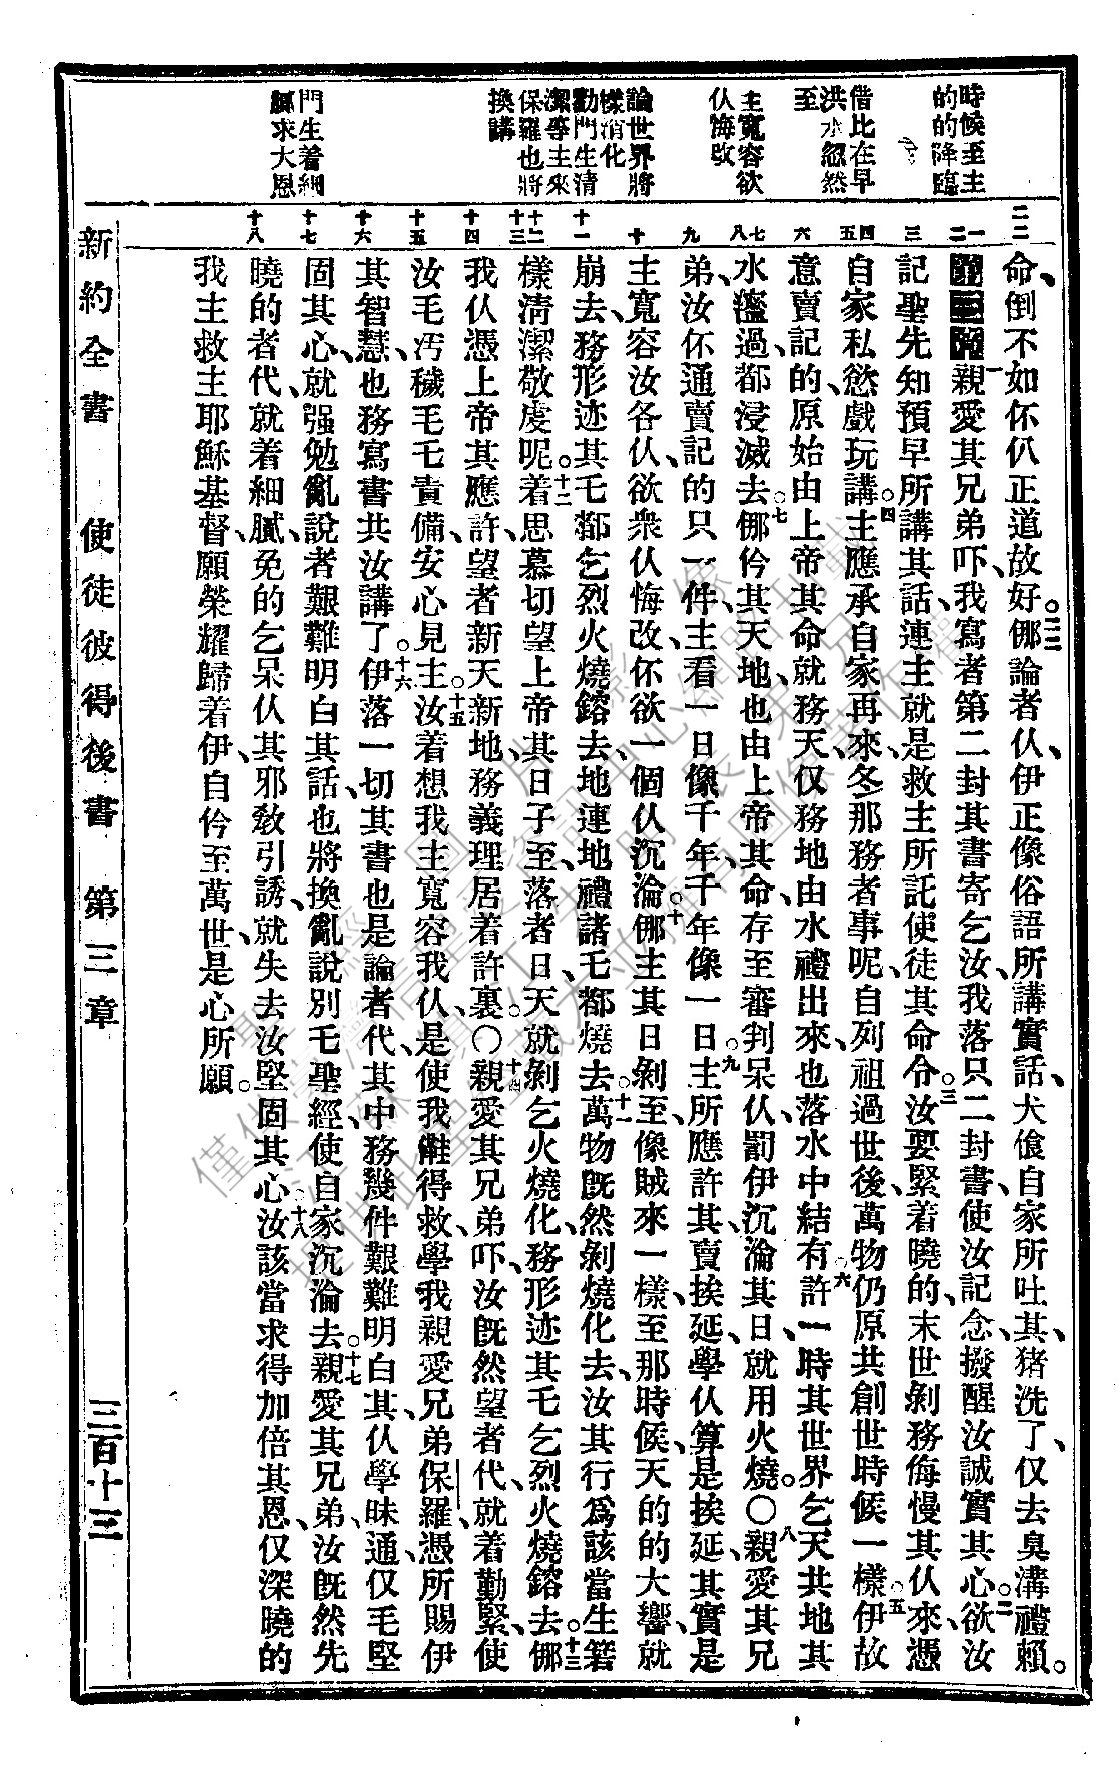 時候至主
的的降臨
借比在早
洪水忽然
至
主寬容欲
仈悔改
論世界將
樣消化
勸門生清
潔等主來
保羅也將
換講
門生着細
膩求大恩
二二
一
二
三
四
五
六
七
八
九
十
十一
十二
十三
十四
十五
十六
十七
十八
命、倒不如伓仈正道故好。二二㑚論者仈、伊正像俗語所講實話、犬飡自家所吐其、猪洗了、仅去臭溝禮賴。
第三章一親愛其兄弟吓、我寫者第二封其書寄乞汝、我落只二封書、使汝記念、撥醒汝誠實其心。二欲汝
記聖先知預早所講其話、連主就是救主所託使徒其命令。三汝要緊着曉的、末世剝務侮慢其仈來、憑
自家私慾戲玩講。四主應承自家再來、冬那務者事呢、自列祖過世後、萬物仍原共創世時候一樣。五伊故
意賣記的、原始由上帝其命就務天、仅務地由水禮出來、也落水中結有許、六一時其世界乞天共地其
水溋過、都浸滅去。七㑚伶其天地也由上帝其命、存至審判呆仈、罰伊沉淪其日、就用火燒。〇八親愛其兄
弟、汝伓通賣記的只一件、主看一日像千年、千年像一日。九主所應許其、賣挨延、學仈算是挨延、其實是
主寬容汝各仈、欲衆仈悔改、伓欲一個仈沉淪。十㑚主其日剝至、像賊來一樣、至那時候、天的的大響就
崩去、務形迹其乇都乞烈火燒鎔去、地連地禮諸乇都燒去。十一萬物旣然剝燒化去、汝其行爲該當生箬
樣清潔敬虔呢。十二着思慕切望上帝其日子至、落者日、天就剝乞火燒化、務形迹其乇乞烈火燒鎔去。十三㑚
我仈憑上帝其應許、望者新天新地、務義理居着許裏。〇十四親愛其兄弟吓、汝旣然望者代、就着勤緊、使
汝毛汚穢毛乇責備、安心見主。十五汝着想我主寬容我仈、是使我儺得救、學我親愛兄弟保羅、憑所賜伊
其智慧、也務寫書共汝講了。十六伊落一切其書也是論者代、其中務幾件艱難明白其、仈學昧通、仅毛堅
固其心、就强勉亂說者艱難明白其話、也將換亂說別乇聖經、使自家沉淪去。十七親愛其兄弟、汝旣然先
曉的者代、就着細膩、免的乞呆仈其邪敎引誘、就失去汝堅固其心。十八汝該當求得加倍其恩、仅深曉的
我主救主耶穌基督、願榮耀歸着伊、自伶至萬世、是心所願。
新約全書　使徒彼得後書　第三章　三百十三